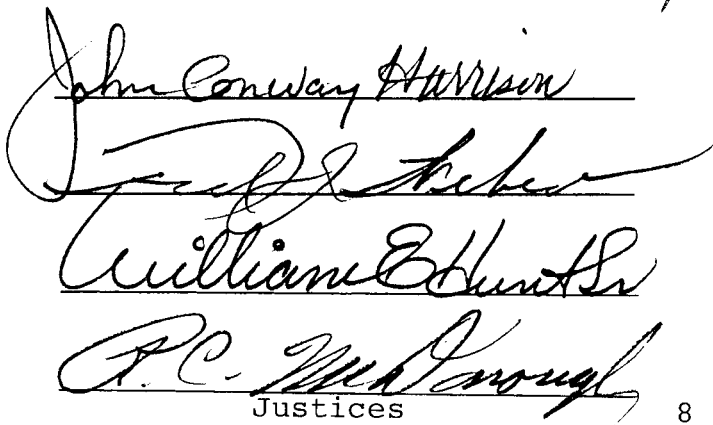 John Conway Harrison
Fred J. Weber
William E Hunt Sr
R. C. McDonough
Justices 8